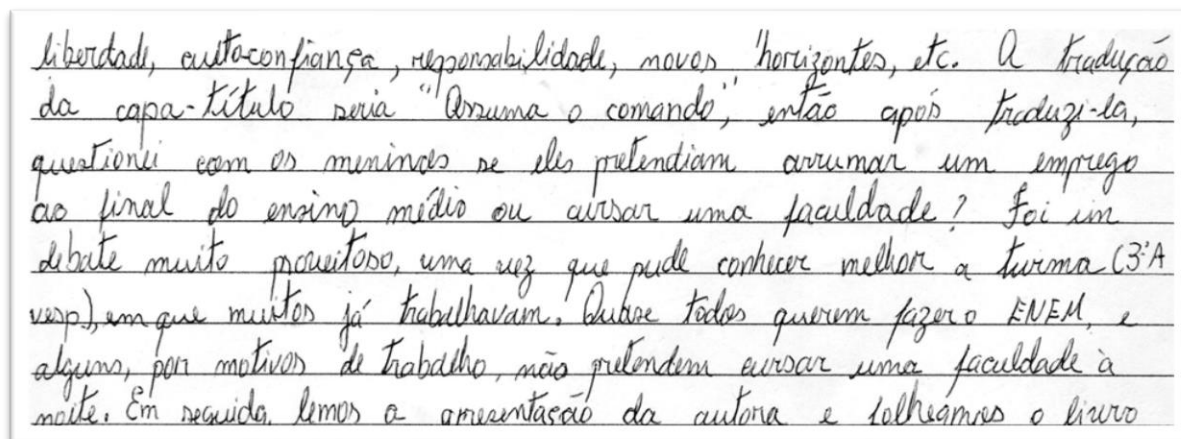 liberdade, autoconfiança, responsabilidade, novos "horizontes, etc. A tradução
da capa-título seria "Assuma o comando", então após traduzi-la,
questionei com os meninos se eles pretendiam arrumar um emprego
ao final do ensino médio ou cursar uma faculdade? Foi um
debate muito proveitoso, uma vez que pude conhecer melhor a turma (3ºA
vesp), em que muitos já trabalhavam. Quase todos querem fazer o ENEM, e
alguns, por motivos de trabalho, não pretendem cursar uma faculdade à
noite. Em seguida, lemos a apresentação da autora e folheamos o livro